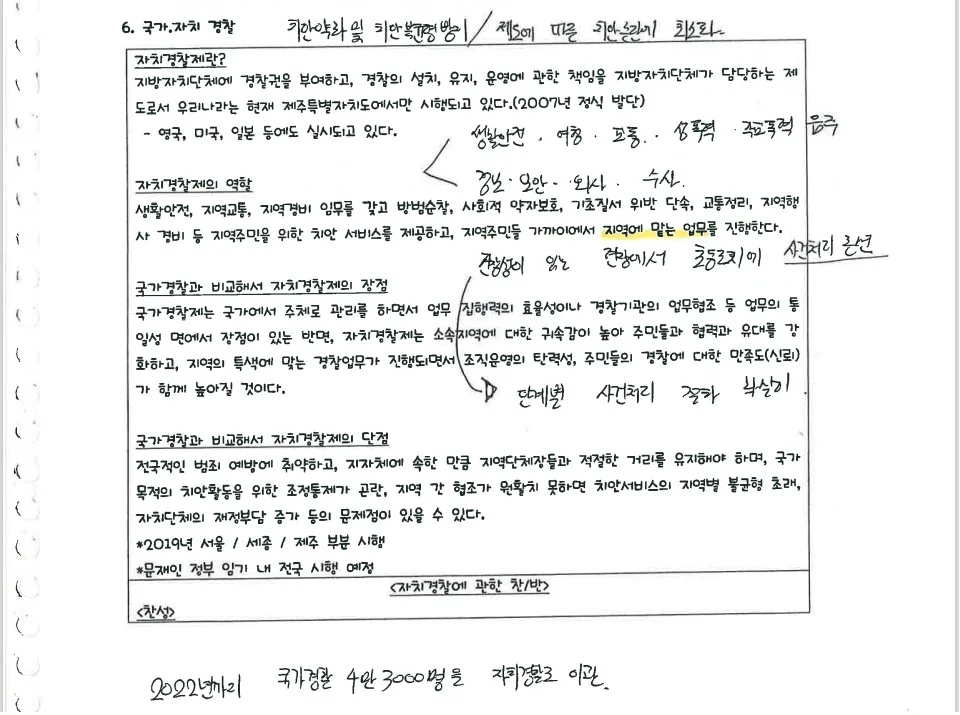 6. 국가.자치 경찰 치안약화 및 치안불균형 방지 / 제도에 따른 치안 최소화.
자치경찰제란?
지방자치단체에 경찰권을 부여하고, 경찰의 설치, 유지, 운영에 관한 책임을 지방자치단체가 담당하는 제
도로서 우리나라는 현재 제주특별자치도에서만 시행되고 있다.(2007년 정식 발단)
- 영국, 미국, 일본 등에도 실시되고 있다.
생활안전 . 여청 . 교통 . 성폭력 . 학교폭력 음주
정보 . 보안 . 외사 . 수사.
자치경찰제의 역할
생활안전, 지역교통, 지역경비 임무를 갖고 방범순찰, 사회적 약자보호, 기초질서 위반 단속, 교통정리, 지역행
사 경비 등 지역주민을 위한 치안 서비스를 제공하고, 지역주민들 가까이에서 지역에 맡는 업무를 진행한다.
긴급성이 있는 현장에서 초동조치에 사건처리 혼선
국가경찰과 비교해서 자치경찰제의 장점
국가경찰제는 국가에서 주체로 관리를 하면서 업무 집행력의 효율성이나 경찰기관의 업무협조 등 업무의 통
일성 면에서 장점이 있는 반면, 자치경찰제는 소속지역에 대한 귀속감이 높아 주민들과 협력과 유대를 강
화하고, 지역의 특색에 맞는 경찰업무가 진행되면서 조직운영의 탄력성, 주민들의 경찰에 대한 만족도(신뢰)
가 함께 높아질 것이다.
단계별 사건처리 절차 확실히.
국가경찰과 비교해서 자치경찰제의 단점
전국적인 범죄 예방에 취약하고, 지자체에 속한 만큼 지역단체장들과 적절한 거리를 유지해야 하며, 국가
목적의 치안활동을 위한 조정통제가 곤란, 지역 간 협조가 원활치 못하면 치안서비스의 지역별 불균형 초래,
자치단체의 재정부담 증가 등의 문제점이 있을 수 있다.
*2019년 서울 / 세종 / 제주 부분 시행
*문재인 정부 임기 내 전국 시행 예정
<자치경찰에 관한 찬/반>
<찬성>
2022년까지 국가경찰 4만 3000명을 자치경찰로 이관.